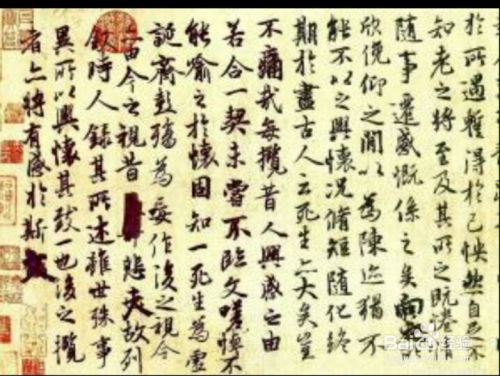 於所遇暫得於己怏然自足不
知老之將至及其所之既惓情
隨事遷感慨係之矣向之
欣俛仰之閒以為陳迹猶不
能不以之興懷況脩短隨化終
期於盡古人云死生亦大矣豈
不痛哉每攬昔人興感之由
若合一契未嘗不臨文嗟悼不
能喻之於懷固知一死生為虛
誕齊彭殤為妄作後之視今
亦由今之視昔悲夫故列
敘時人錄其所述雖世殊事
異所以興懷其致一也後之攬
者亦將有感於斯文
Baidu经验